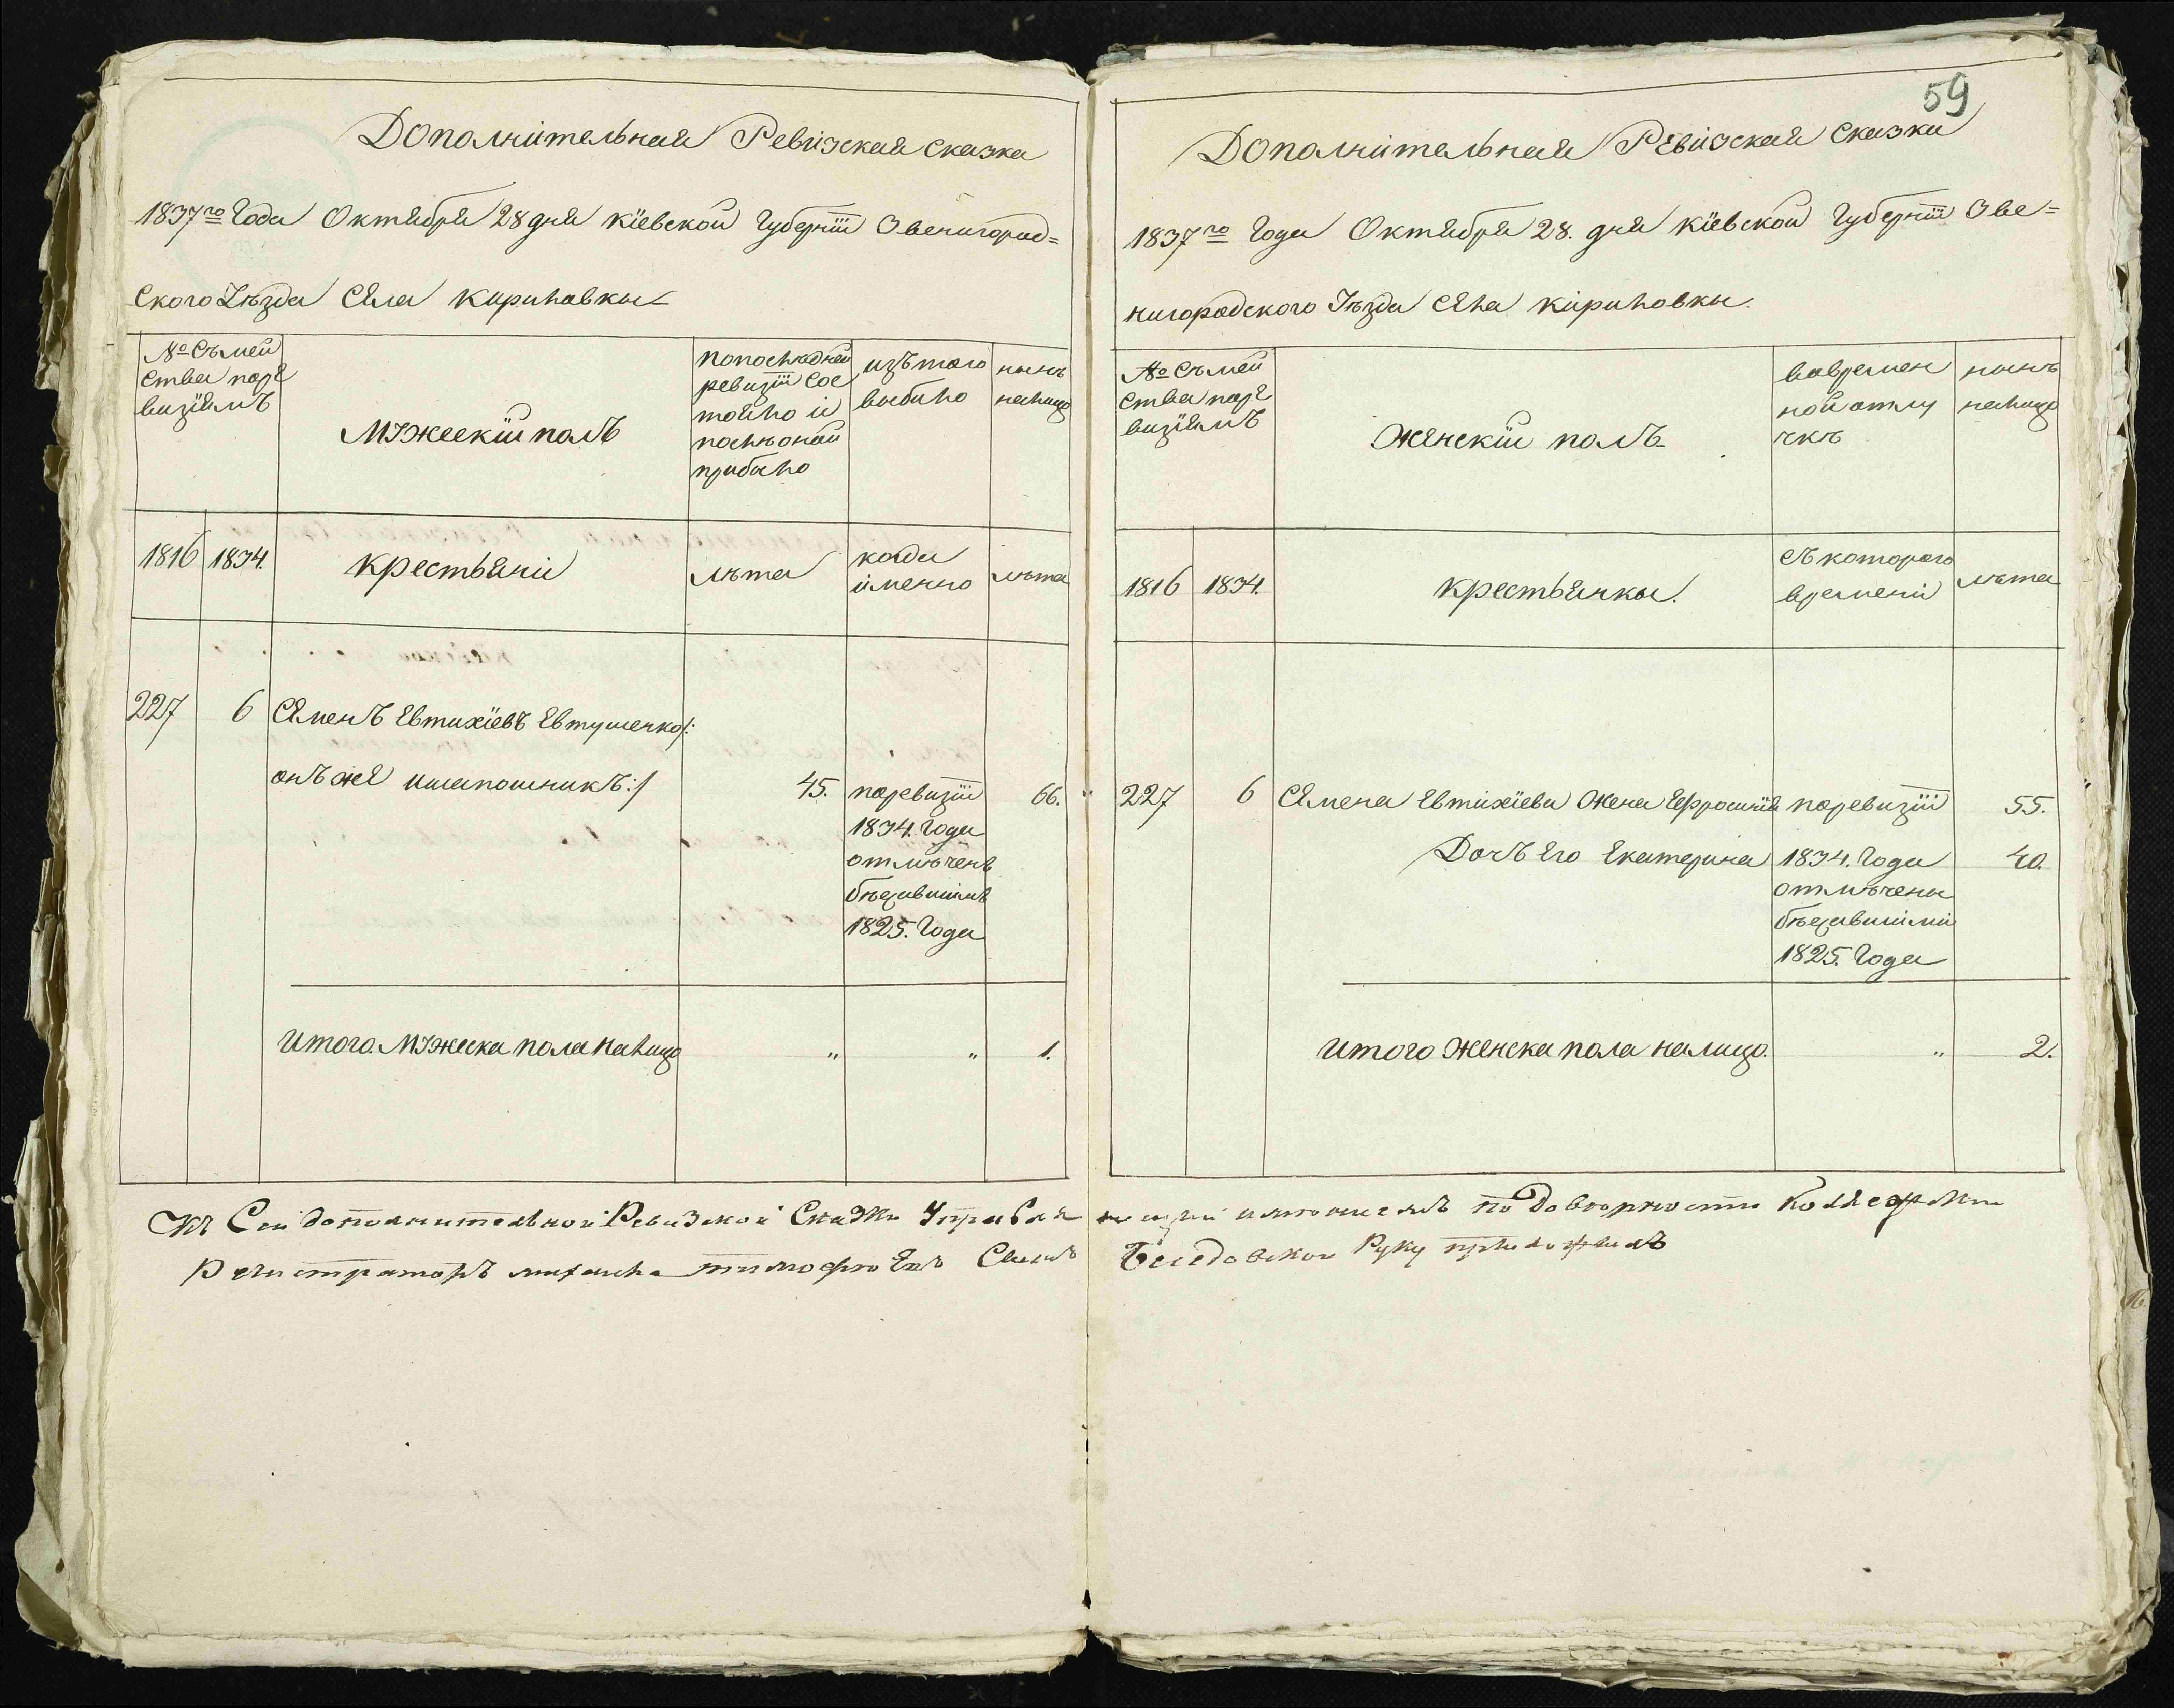 Дополнительная Ревизская сказка
1837го Года Октября 28 дня Кіевской Губерніи Звенигород=
ского Уѣзда Села Кириловки
№ Съмей
ства поре
визіямъ
Мужескій полъ
попослѣдней
ревизіи сос
тояло и
послѣ оной
прибыло
изътого
выбыло
нынѣ
налицо
1816 1834. Крестьяни лѣта
когда
именно
лѣта
227 6 Семенъ Евтихіевъ Евтушенко/:
онъ же шапошникъ:/ 45. поревизіи 66.
1834. Года
отмѣченъ
бѣжавшимъ
1825. Года
Итого Мужеска пола налицо „ „ 1.
59
Дополнительная Ревизская Сказка
1837го Года Октября 28. дня Кіевской Губерніи Звє=
нигородского Уѣзда Села Кириловки.
№ Съмей
ства поре
визіямъ
Женскій полъ
вовремен
ной отлу
чкѣ
нынѣ
налицо
1816 1834. Крестьянки.
съ которого
времени
лѣта
227 6 Семена Евтихіева Жена Ефросинія поревизіи 55.
Дочь Его Екатерина 1834. Года 40.
отмѣчены
бѣжавшими
1825. Года
Итого Женска пола налицо. „ 2.
Къ Сей дополнительной Ревизской Сказки Управляющій имѣниемъ по довѣрности Колежскии
Регистраторъ михаила тимофѣевъ Сынъ Беседовской Руку приложилъ